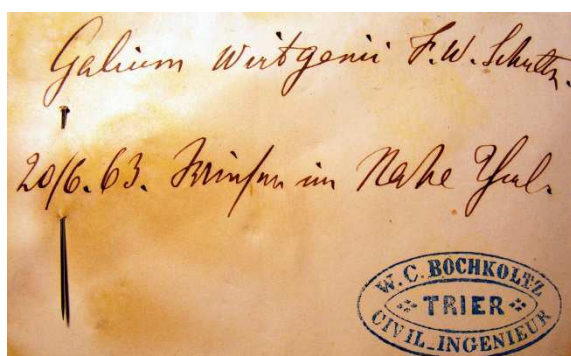 Galium Wirtgenii F.W. Schultz.
20/6.63. Wiesen im Nahe Thal.
W.C. BOCHKOLTZ
TRIER
CIVIL-INGENIEUR